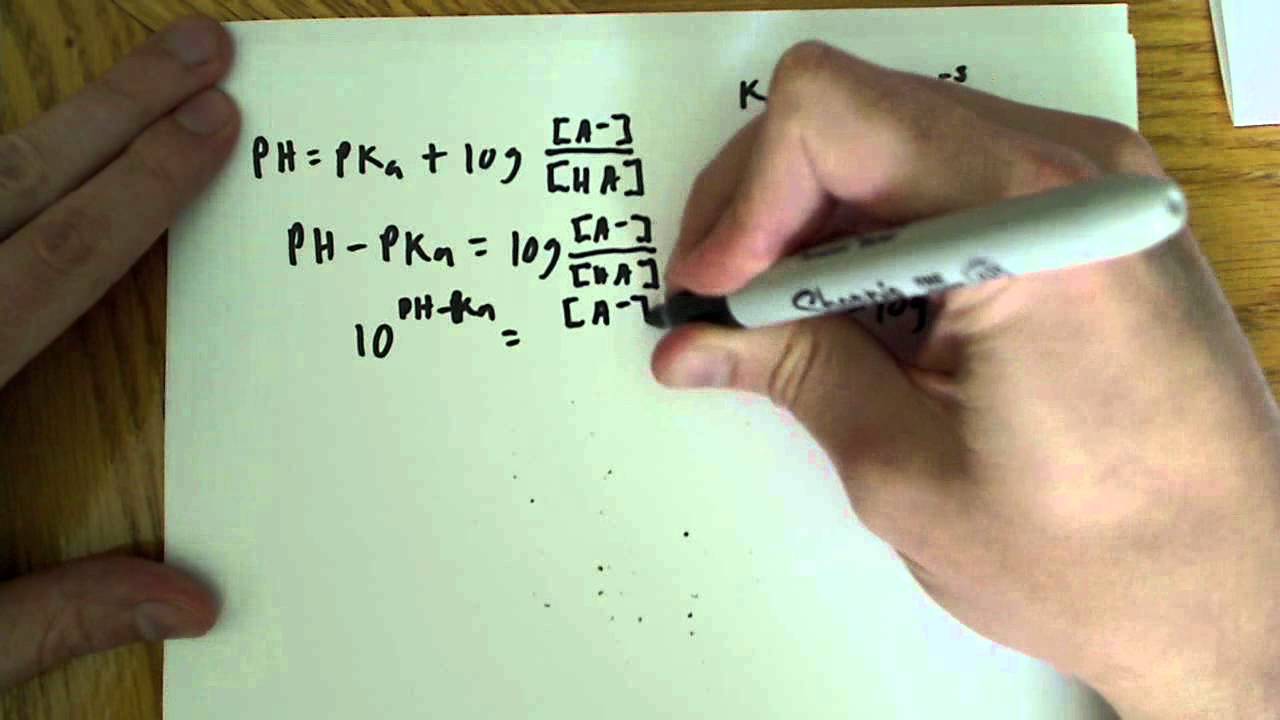 K -5
PH = PKa + log [A-]/[HA]
PH - PKa = log [A-]/[HA]
10^PH-Ka = [A-]
Sharpie